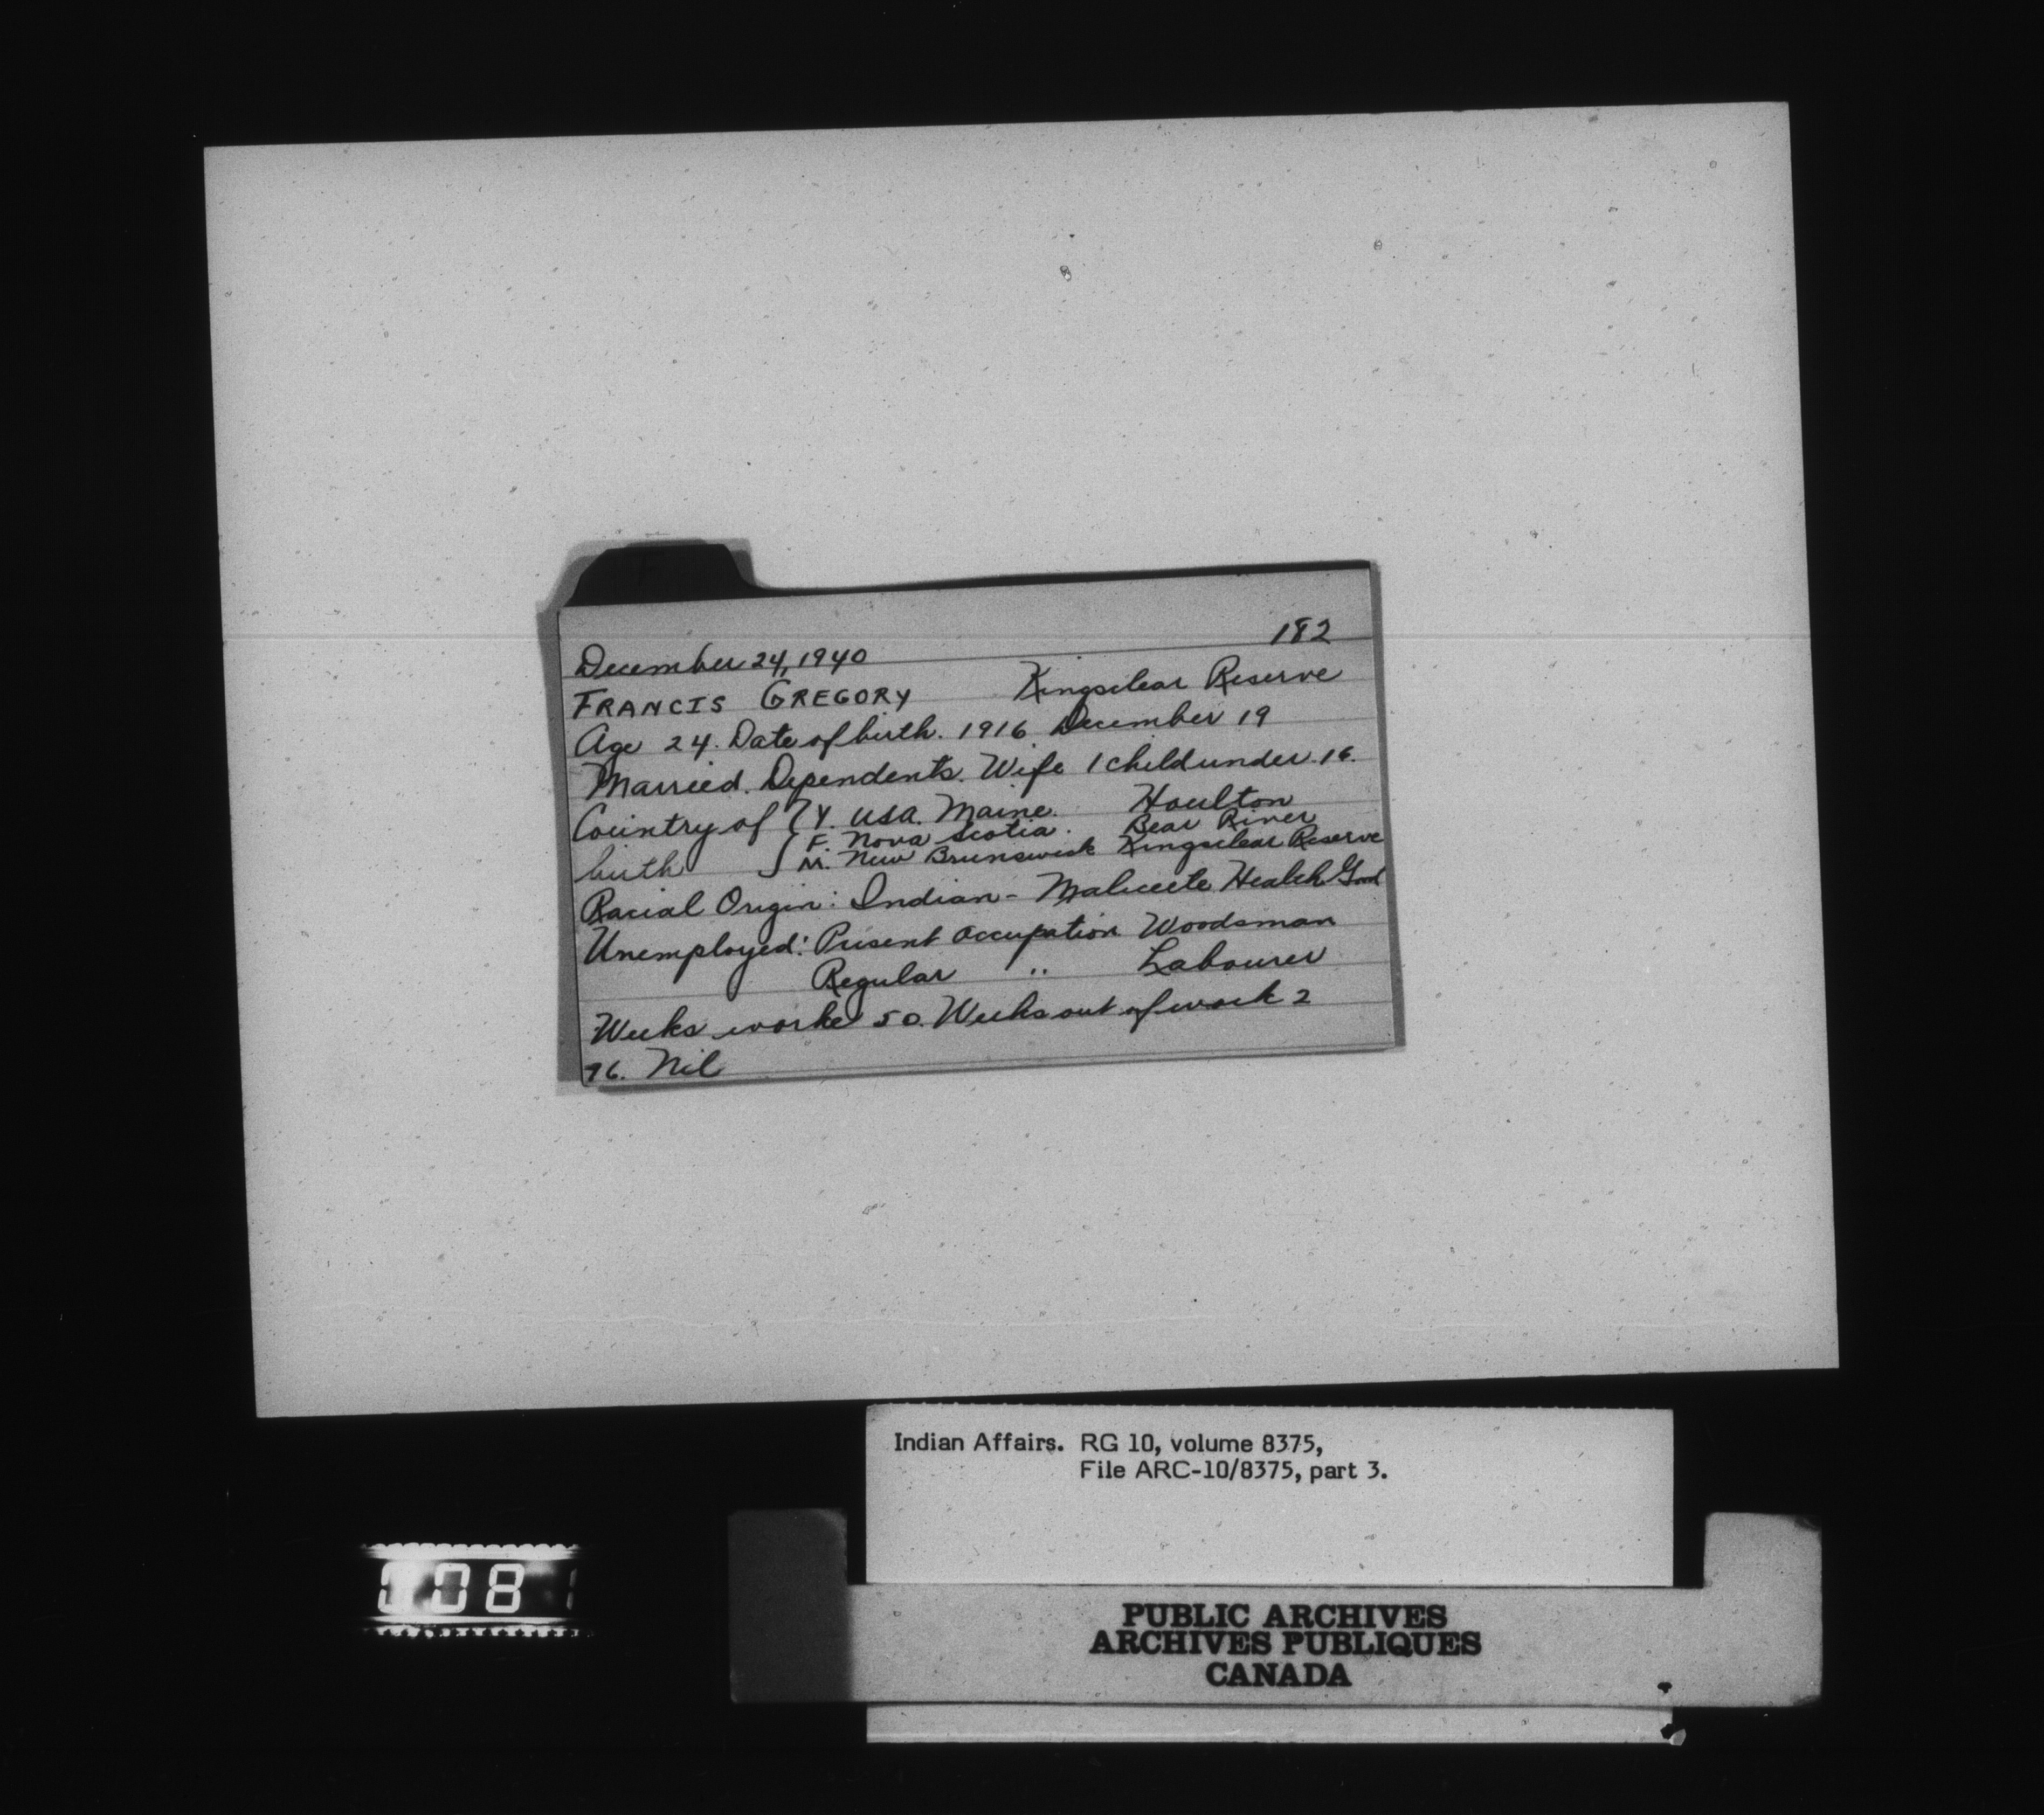 182
December 24, 1940
FRANCIS GREGORY Kingsclear Reserve
Age 24. Date of birth. 1916 December 19
Married. Dependents. Wife 1 child under. 16.
Country of } Y. USA. Maine. Houlton
F. Nova Scotia. Bear River
birth } M. New Brunswick Kingsclear Reserve
Racial Origin: Indian - Malicete Health Good
Unemployed: Present Occupation Woodsman
Regular " Labourer
Weeks worked 50. Weeks out of work 2
76. Nil
Indian Affairs. RG 10, volume 8375,
File ARC-10/8375, part 3.
PUBLIC ARCHIVES
ARCHIVES PUBLIQUES
CANADA